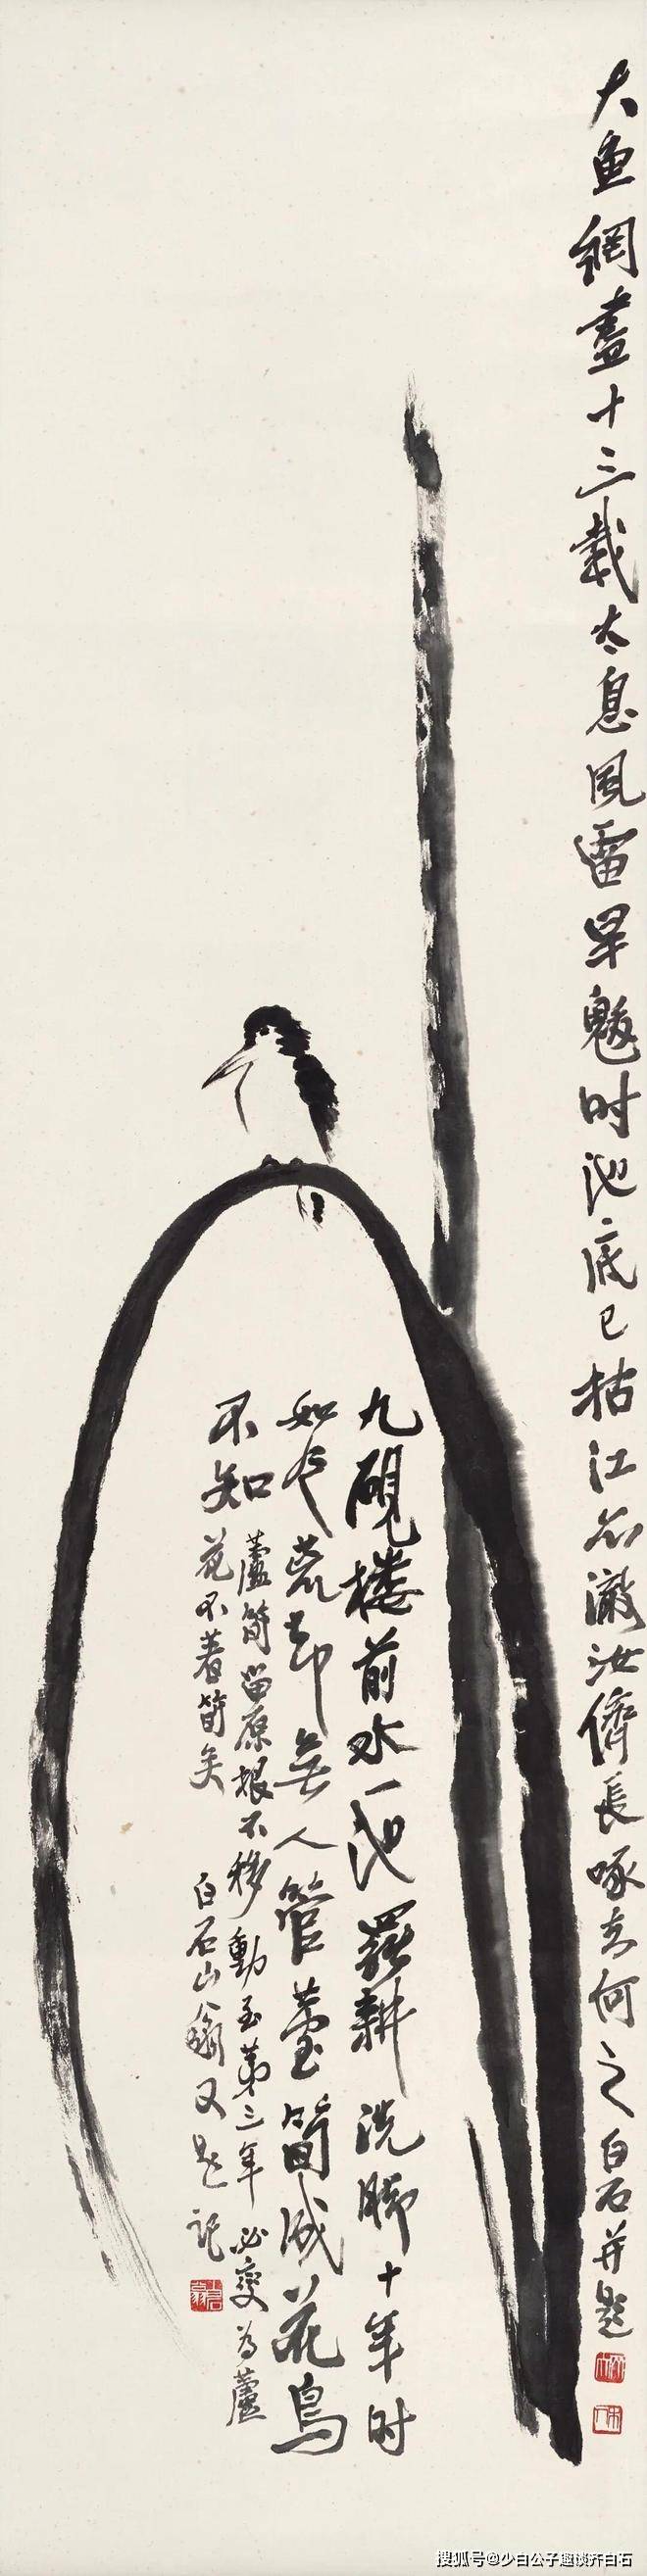 大魚網盡十三載太息風雷旱魃時池底已枯江亦澈汝儕長啄去何之白石并題
九硯樓前水一池罷耕洗腳十年時
如今荒却無人管蘆筍成花鳥
不知
蘆筍留原根不移動至第三年必變為蘆
花不著筍矣
白石山翁又題記
搜狐号@少白公子趣谈齐白石